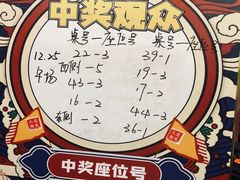 中奖观众
桌号—座位号 桌号—座位号
12.25 22-3 39-1
午场 西侧-5 19-3
43-3 17-2
16-2 44-3
南侧-2 36-1
中奖座位号